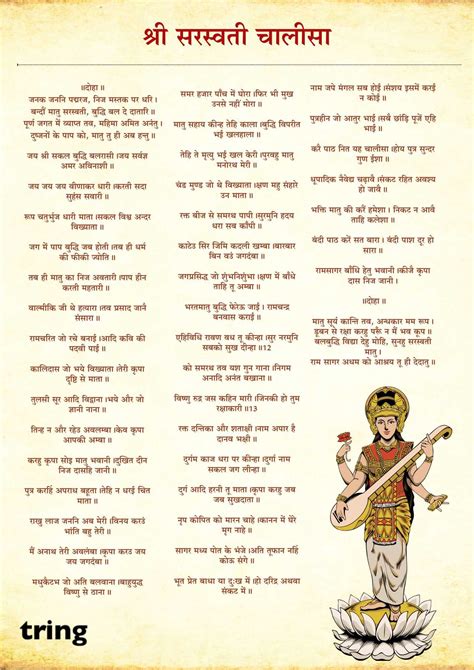 श्री सरस्वती चालीसा
॥दोहा॥
जनक जननि पद्मरज, निज मस्तक पर धरि।
बन्दौं मातु सरस्वती, बुद्धि बल दे दातारि॥
पूर्ण जगत में व्याप्त तव, महिमा अमित अनंतु।
दुष्जनों के पाप को, मातु तु ही अब हन्तु॥
जय श्री सकल बुद्धि बलरासी।जय सर्वज्ञ
अमर अविनाशी॥
जय जय जय वीणाकर धारी।करती सदा
सुहंस सवारी॥
रूप चतुर्भुज धारी माता।सकल विश्व अन्दर
विख्याता॥
जग में पाप बुद्धि जब होती।तब ही धर्म
की फीकी ज्योति॥
तब ही मातु का निज अवतारी।पाप हीन
करती महतारी॥
वाल्मीकि जी थे हत्यारा।तव प्रसाद जानै
संसारा॥
रामचरित जो रचे बनाई।आदि कवि की
पदवी पाई॥
कालिदास जो भये विख्याता।तेरी कृपा
दृष्टि से माता॥
तुलसी सूर आदि विद्वाना।भये और जो
ज्ञानी नाना॥
तिन्ह न और रहेउ अवलम्बा।केव कृपा
आपकी अम्बा॥
करहु कृपा सोइ मातु भवानी।दुखित दीन
निज दासहि जानी॥
पुत्र करहिं अपराध बहूता।तेहि न धरई चित
माता॥
राखु लाज जननि अब मेरी।विनय करउं
भांति बहु तेरी॥
मैं अनाथ तेरी अवलंबा।कृपा करउ जय
जय जगदंबा॥
मधुकैटभ जो अति बलवाना।बाहुयुद्ध
विष्णु से ठाना॥
समर हजार पाँच में घोरा।फिर भी मुख
उनसे नहीं मोरा॥
मातु सहाय कीन्ह तेहि काला।बुद्धि विपरीत
भई खलहाला॥
तेहि ते मृत्यु भई खल केरी।पुरवहु मातु
मनोरथ मेरी॥
चंड मुण्ड जो थे विख्याता।क्षण महु संहारे
उन माता॥
रक्त बीज से समरथ पापी।सुरमुनि हदय
धरा सब काँपी॥
काटेउ सिर जिमि कदली खम्बा।बारबार
बिन वउं जगदंबा॥
जगप्रसिद्ध जो शुंभनिशुंभा।क्षण में बाँधे
ताहि तू अम्बा॥
भरतमातु बुद्धि फेरेऊ जाई।रामचन्द्र
बनवास कराई॥
एहिविधि रावण वध तू कीन्हा।सुर नरमुनि
सबको सुख दीन्हा॥12
को समरथ तव यश गुन गाना।निगम
अनादि अनंत बखाना॥
विष्णु रुद्र जस कहिन मारी।जिनकी हो तुम
रक्षाकारी॥13
रक्त दन्तिका और शताक्षी।नाम अपार है
दानव भक्षी॥
दुर्गम काज धरा पर कीन्हा।दुर्गा नाम
सकल जग लीन्हा॥
दुर्ग आदि हरनी तू माता।कृपा करहु जब
जब सुखदाता॥
नृप कोपित को मारन चाहे।कानन में घेरे
मृग नाहे॥
सागर मध्य पोत के भंजे।अति तूफान नहिं
कोऊ संगे॥
भूत प्रेत बाधा या दुःख में।हो दरिद्र अथवा
संकट में॥
नाम जपे मंगल सब होई।संशय इसमें करई
न कोई॥
पुत्रहीन जो आतुर भाई।सबै छांड़ि पूजें एहि
भाई॥
करै पाठ नित यह चालीसा।होय पुत्र सुन्दर
गुण ईशा॥
धूपादिक नैवेद्य चढ़ावै।संकट रहित अवश्य
हो जावै॥
भक्ति मातु की करैं हमेशा।निकट न आवै
ताहि कलेशा॥
बंदी पाठ करें सत बारा।बंदी पाश दूर हो
सारा॥
रामसागर बाँधि हेतु भवानी।कीजै कृपा
दास निज जानी॥
॥दोहा॥
मातु सूर्य कान्ति तव, अन्धकार मम रूप।
डूबन से रक्षा करहु परूँ न मैं भव कूप॥
बलबुद्धि विद्या देहु मोहि, सुनहु सरस्वती
मातु।
राम सागर अधम को आश्रय तू ही देदातु॥
tring